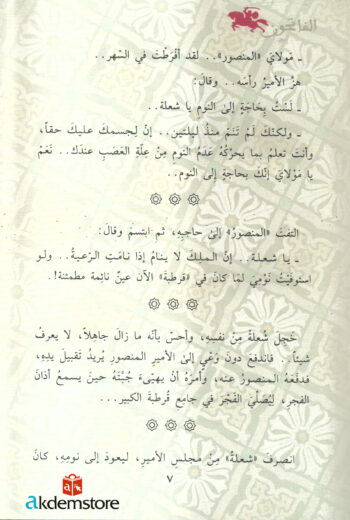 الفاتحون
ـ مَولايَ «المنصور».. لقد أفْرَطْتَ في السَّهر..
هزَّ الأميرُ رأسَه.. وقالَ:
ـ لَسْتُ بِحَاجَةٍ إلى النومِ يا شعلة..
ـ ولكنَّكَ لَمْ تَنَمْ منذُ ليلتَين.. إنَّ لِجسمكَ عليكَ حقاً،
وأنتَ تعلمُ بما يحرِّكُهُ عَدَمُ النومِ مِنْ عِلَّةِ العَصَبِ عندَك.. نَعَمْ
يا مَوْلايَ إنَّك بحاجةٍ إلى النوم..
التفتَ «المنصورُ» إلى حاجِبِهِ، ثم ابتسمَ وقالَ:
ـ يا شعلة.. إنَّ المَلِكَ لا ينامُ إذا نامَتِ الرَّعيةُ.. ولو
استوفَيْتُ نَوْمِيَ لمَا كانَ في «قرطبةَ» الآن عينٌ نائمة مطمئنة!.
خَجِلَ شُعلةُ مِنْ نفسِهِ، وأحسَّ بأنَّه ما زالَ جاهِلاً، لا يعرفُ
شيئاً.. فاندفعَ دونَ وَعْيٍ إلى الأميرِ المنصورِ يُريدُ تَقْبيلَ يدِهِ،
فدَفَعَهُ المنصورُ عنه، وأَمَرَهُ أنْ يهيِّىءَ جُبَّتَهُ حينَ يسمعُ أذانَ
الفجرِ، لِيُصَلِّيَ الفَجْرَ في جامِعِ قُرطبةَ الكبير...
انصرفَ «شعلةُ» مِنْ مجلسِ الأميرِ، ليعودَ إلى نومِهِ، كانَ
٧
akdemstore